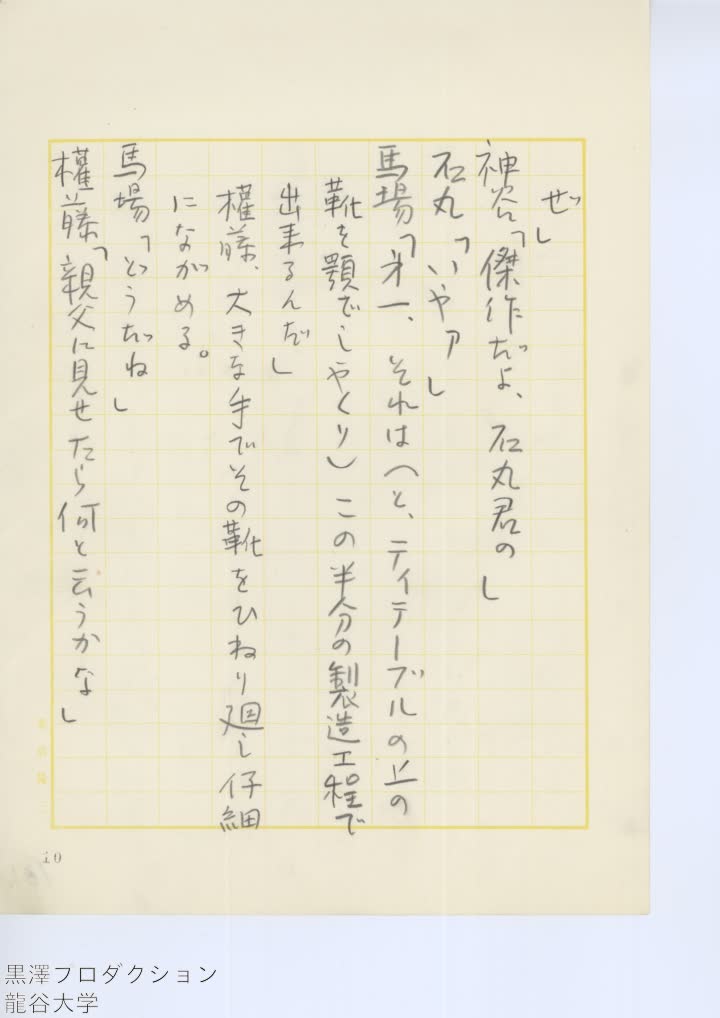 ぜ」
神谷「傑作だよ、石丸君の」
石丸「いやア」
馬場「才一、それは(と、ティテーブルの上の
靴を顎でしやくり)この半分の製造工程で
出来るんだ」
權藤、大きな手でその靴をひねり廻し仔細
にながめる。
馬場「どうだね」
權藤「親父に見せたら何と云うかな」
10
黒澤プロダクション
龍谷大学